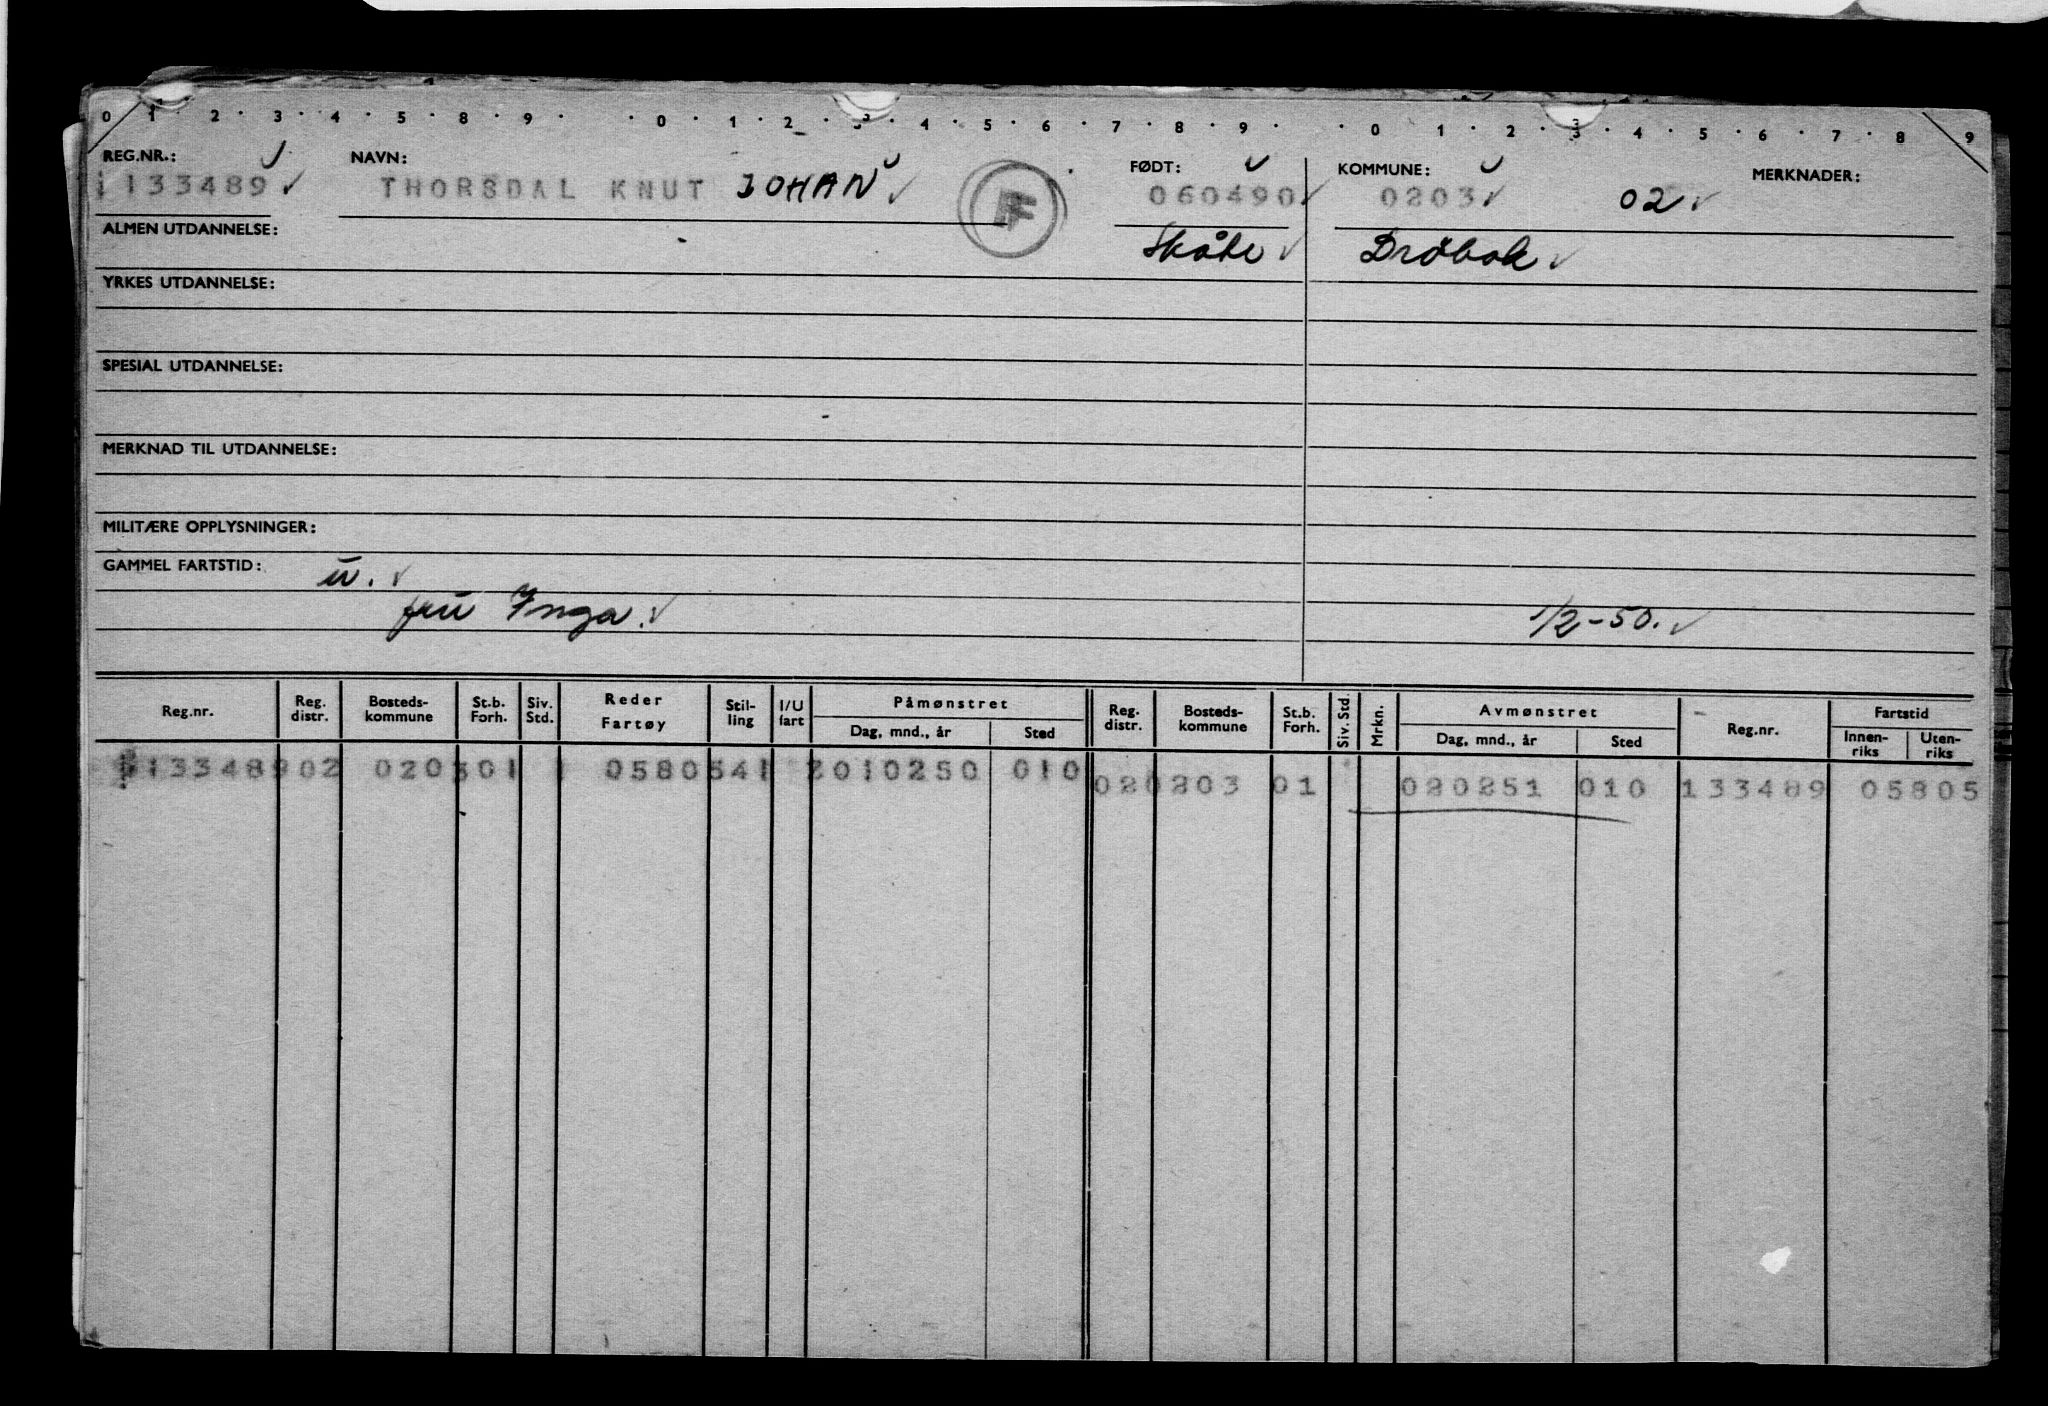 0 1 2 3 4 5 8 9 0 1 2 3 4 5 6 7 8 9 0 1 2 3 4 5 6 7 8 9
REG.NR.: NAVN: FØDT: KOMMUNE: MERKNADER:
133489 THORSDAL KNUT JOHAN 060490 0203 02
ALMEN UTDANNELSE: Skåte Dröbak
YRKES UTDANNELSE:
SPESIAL UTDANNELSE:
MERKNAD TIL UTDANNELSE:
MILITÆRE OPPLYSNINGER:
GAMMEL FARTSTID: u.
fru Inga. 1/2-50.
Reg.nr. Reg. distr. Bosteds-kommune St.b. Forh. Siv. Std. Reder Fartøy Stil-ling I/U fart Påmønstret Dag, mnd., år Sted Reg. distr. Bosteds-kommune St.b. Forh. Siv. Std. Mrkn. Avmønstret Dag, mnd., år Sted Reg.nr. Fartstid Innen-riks Uten-riks
133489 02 0203 01 1 0580 541 2 010250 010 02 0203 01 020251 010 133489 05805